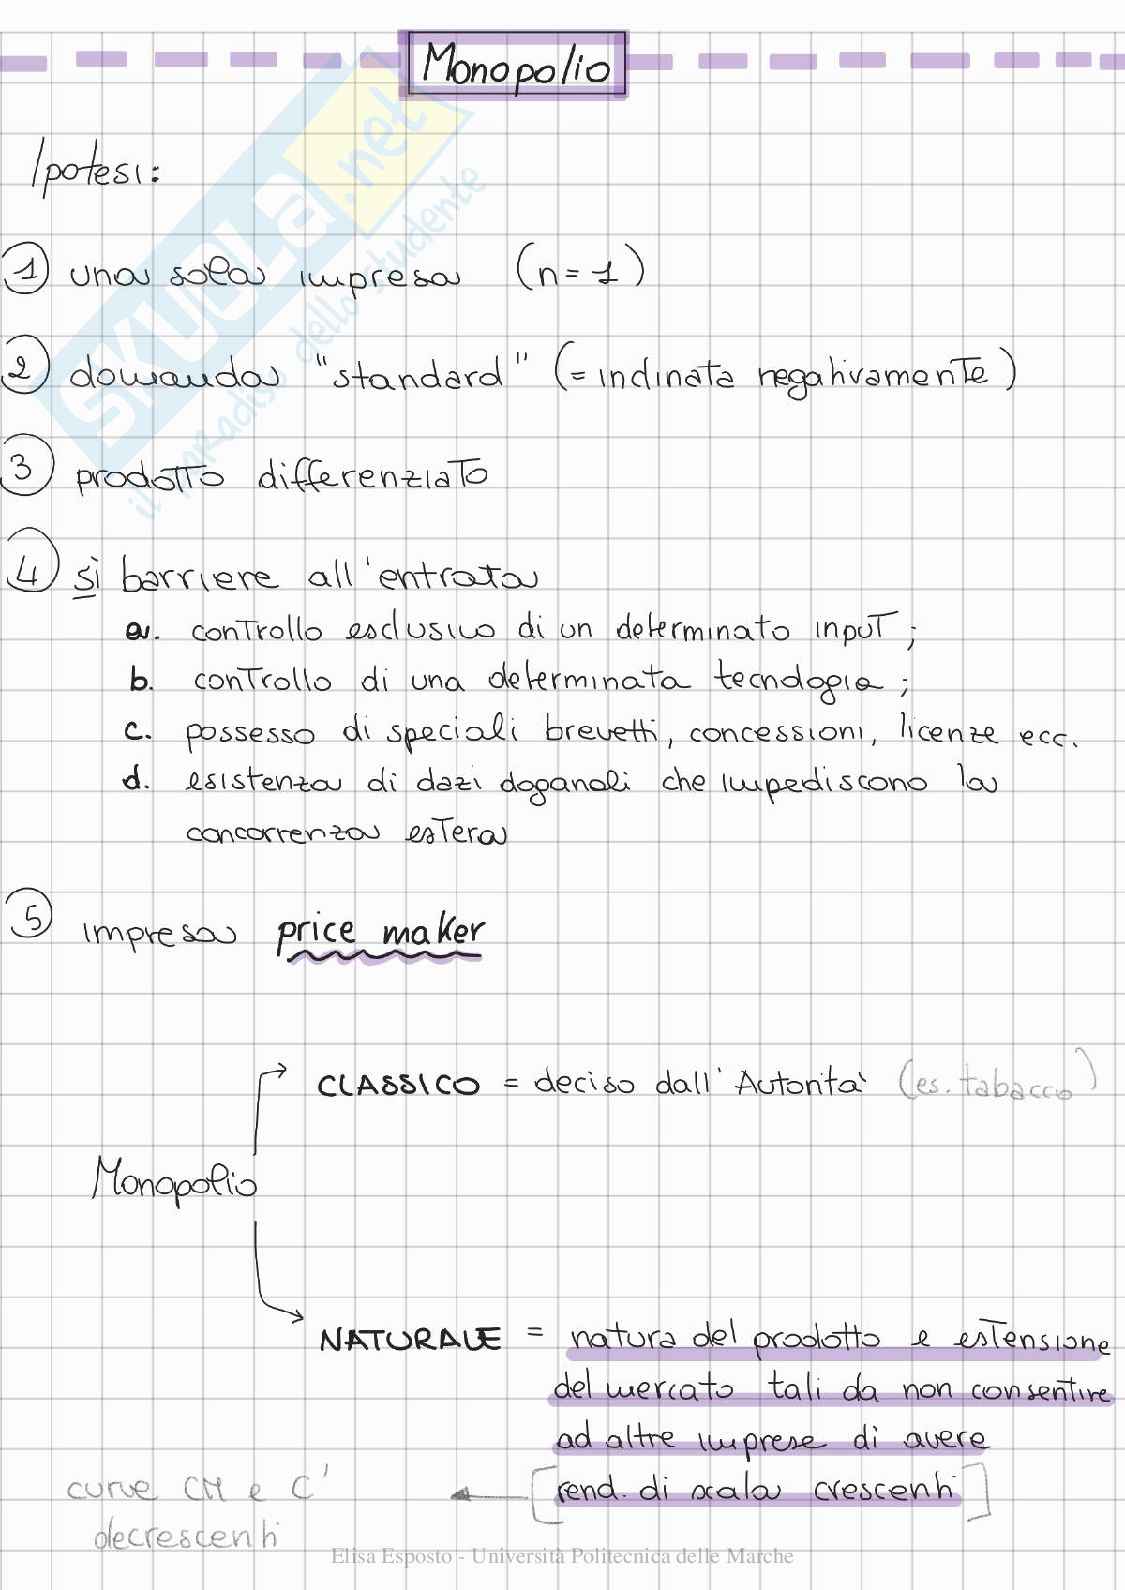 Monopolio
Ipotesi:
1 una sola impresa (n=1)
2 domanda "standard" (= inclinata negativamente)
3 prodotto differenziato
4 sì barriere all'entrata
a. controllo esclusivo di un determinato input;
b. controllo di una determinata tecnologia;
c. possesso di speciali brevetti, concessioni, licenze ecc.
d. esistenza di dazi doganali che impediscono la
concorrenza estera
5 impresa price maker
CLASSICO = deciso dall'Autorità (es. tabacco)
Monopolio
NATURALE = natura del prodotto e estensione
del mercato tali da non consentire
ad altre imprese di avere
[rend. di scala crescenti]
curve CM e C'
decrescenti
SKUOLA.net
il paradiso dello studente
Elisa Esposto - Università Politecnica delle Marche